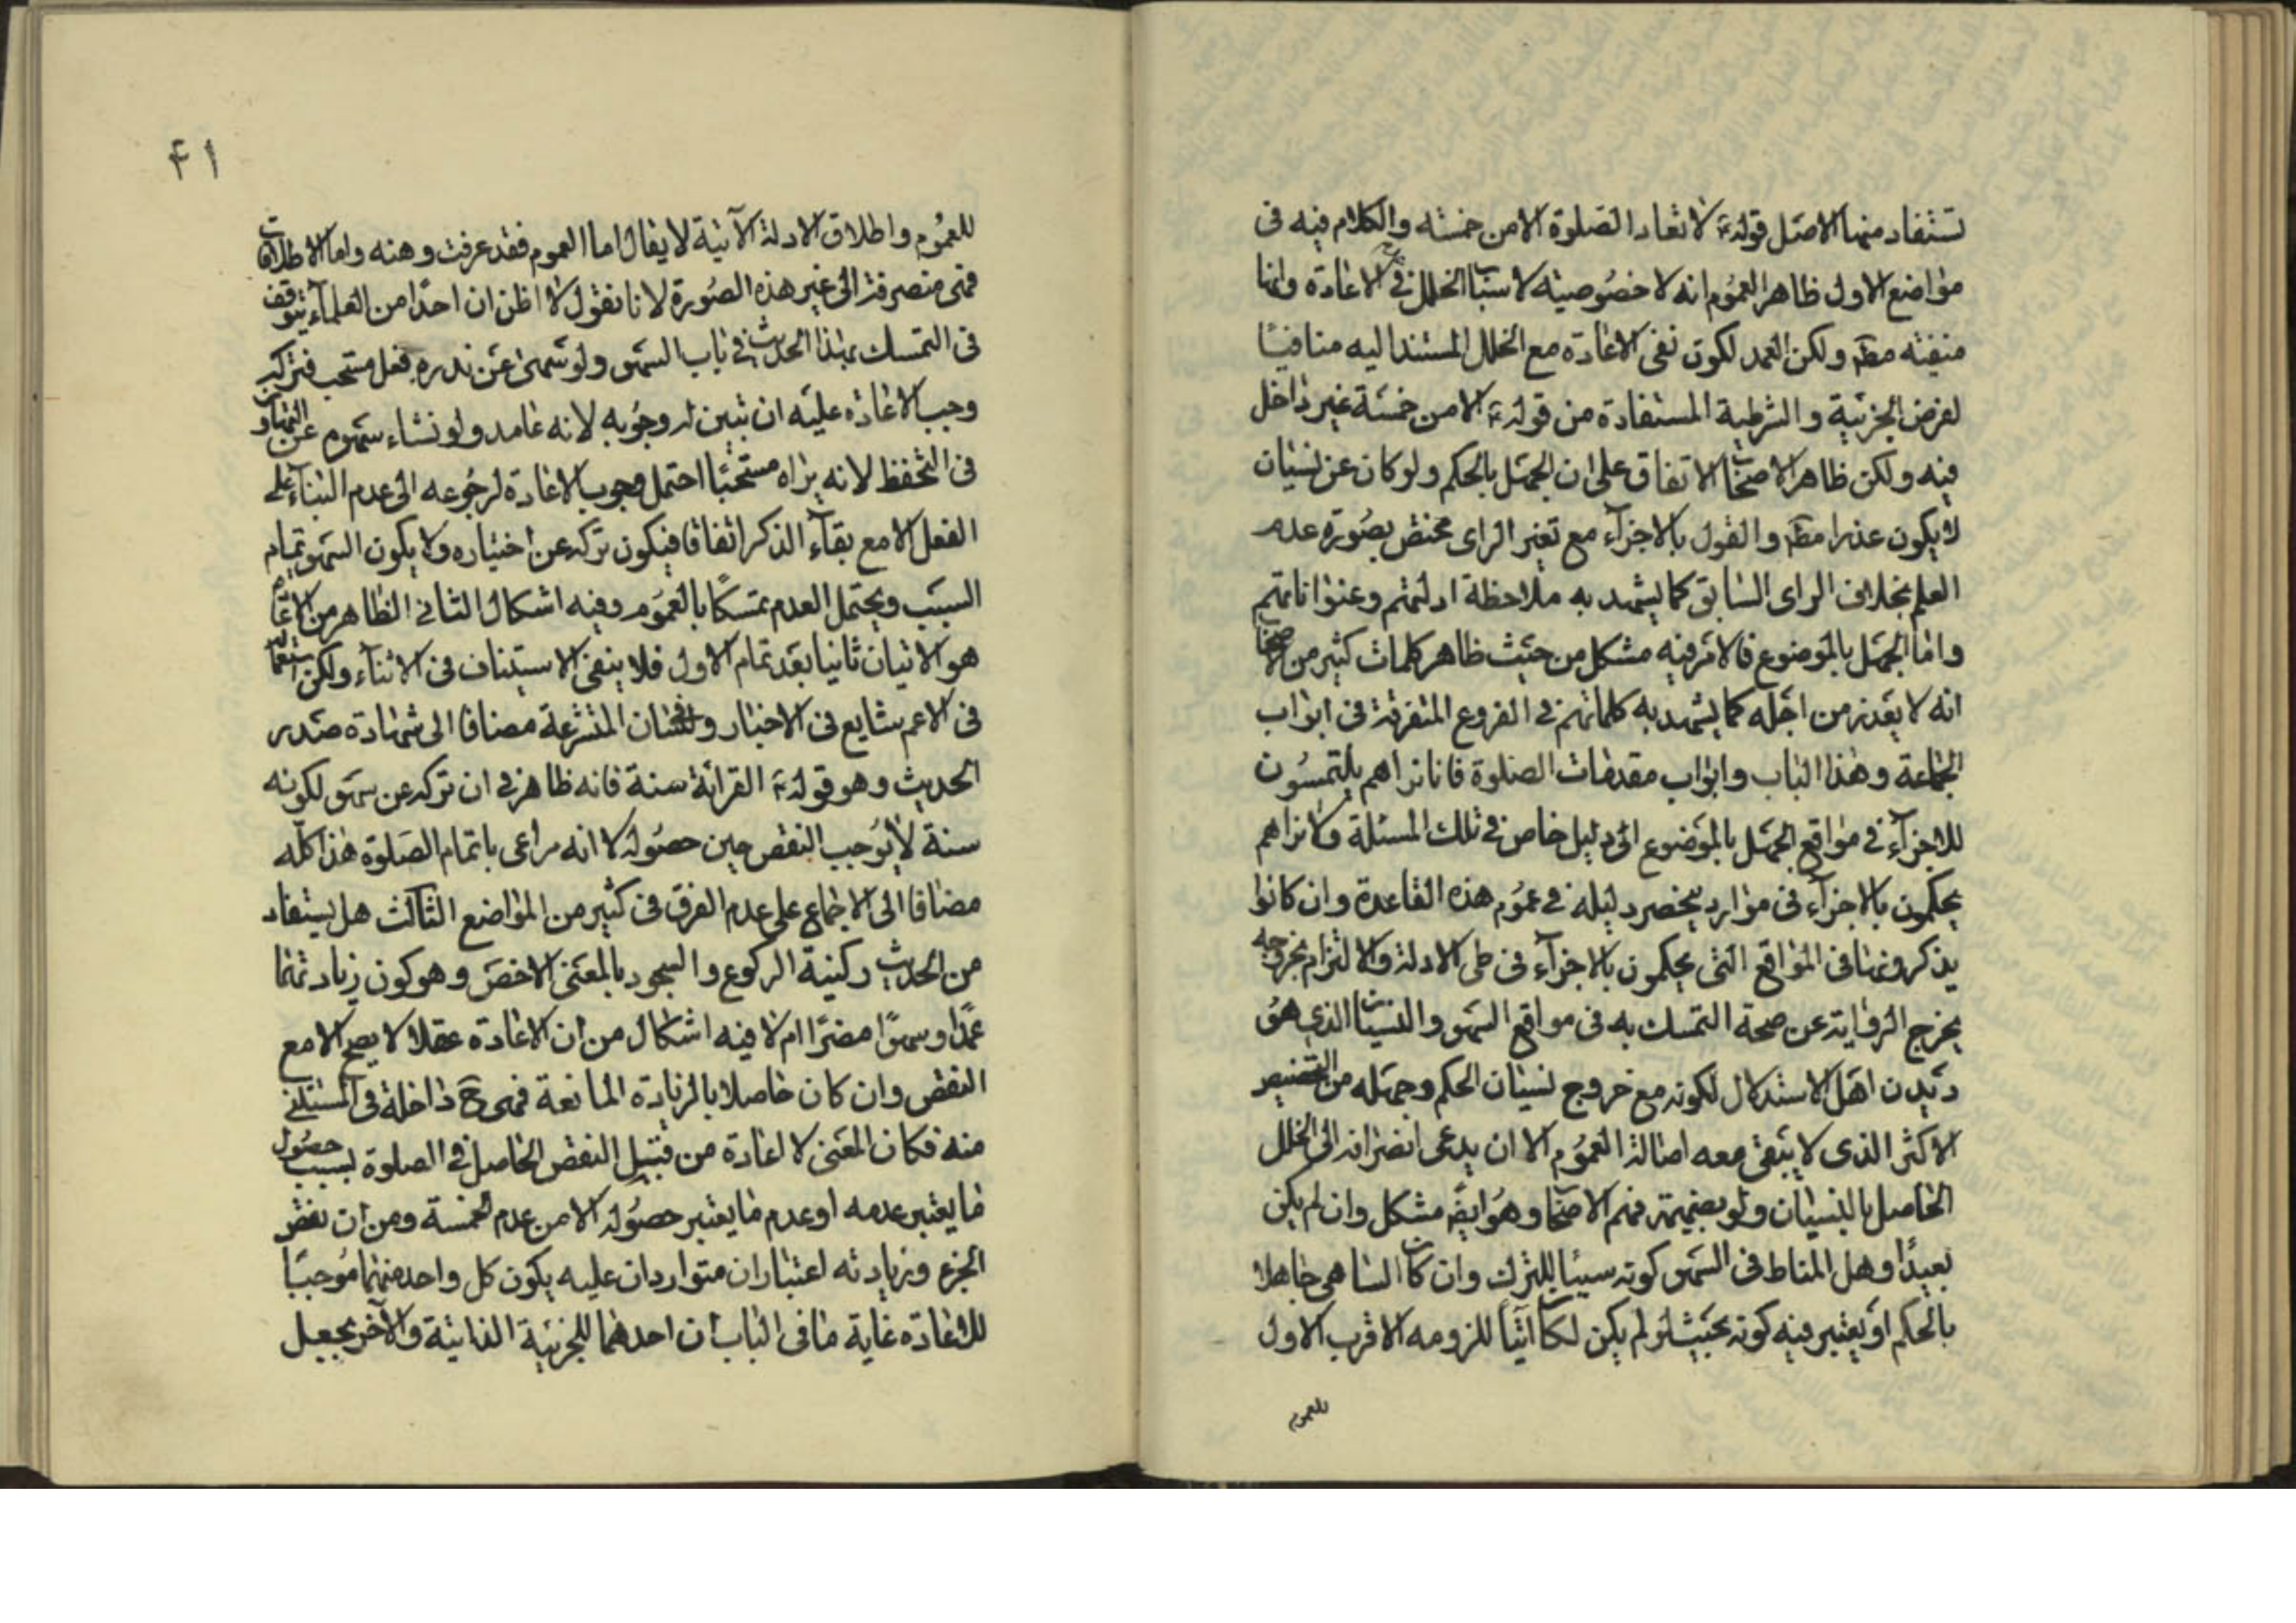 تستفاد منها الاصل قوله ع لا تعاد الصلوة الا من خمسة والكلام فيه فى
مواضع الاول ظاهر العموم انه لا خصوصية لاسباب الخلل فى الاعادة وانها
منفية مط ولكن العمد لكون نفى الاعادة مع الخلل المستند اليه منافيا
لفرض الجزئية والشرطية المستفادة من قوله ع الا من خمسة غير داخل
فيه ولكن ظاهر الاصحاب الاتفاق على ان الجهل بالحكم ولو كان عن نسيان
لا يكون عذرا مط والقول بالاجزآء مع تغير الراى مختص بصورة عدم
العلم بخلاف الراى السابق كما يشهد به ملاحظة ادلتهم وعنواناتهم
واما الجهل بالموضوع فالامر فيه مشكل من حيث ظاهر كلمات كثير من الاصحاب
انه لا يعذر من اجله كما يشهد به كلماتهم فى الفروع المتفرقة فى ابواب
الجماعة وهذا الباب وابواب مقدمات الصلوة فانا نراهم يلتمسون
للاجزآء فى مواقع الجهل بالموضوع الى دليل خاص فى تلك المسئلة ولا نراهم
يحكمون بالاجزآء فى موارد ينحصر دليله فى عموم هذه القاعدة وان كانوا
يذكرونها فى المواقع التى يحكمون بالاجزآء فى طى الادلة والالتزام بخروجه
يخرج الرواية عن صحة التمسك به فى مواقع السهو والنسيان الذى هو
ديدن اهل الاستدلال لكونه مع خروج نسيان الحكم وجهله من التخصيص
الاكثر الذى لا يبقى معه اصالة العموم الا ان يدعى انصرافه الى الخلل
الحاصل بالنسيان ولو بضميمة فهم الاصحاب وهو ايضا مشكل وان لم يكن
بعيدًا وهل المناط فى السهو كونه سببا للترك وان كان الساهى جاهلا
بالحكم او يعتبر فيه كونه بحيث لو لم يكن لكان آتيا للزومه الاقرب الاول
للعموم
۴۱
للعموم واطلاق الادلة الآتية لا يقال اما العموم فقد عرفت وهنه واما الاطلاقات
فهى منصرفة الى غير هذه الصورة لانا نقول لا اظن ان احدًا من العلمآء يتوقف
فى التمسك بهذا الحديث فى باب السهو ولو سهى عن نذره فعل مستحب فتركه
وجب الاعادة عليه ان تبين له وجوبه لانه عامد ولو نشاء سهوه عن التهاون
فى التحفظ لانه يراه مستحبًا احتمل وجوب الاعادة لرجوعه الى عدم البنآء على
الفعل الا مع بقآء الذكر اتفاقا فيكون تركه عن اختياره ولا يكون السهو تمام
السبب ويحتمل العدم تمسكًا بالعموم وفيه اشكال الثانى الظاهر من الاعادة
هو الاتيان ثانيا بعد تمام الاول فلا ينفى الاستيناف فى الاثنآء ولكن استعمالها
فى الاعم شايع فى الاخبار ولسان المتشرعة مضافا الى شهادة صدر
الحديث وهو قوله ع القرائة سنة فانه ظاهر فى ان تركه عن سهو لكونه
سنة لا يوجب النقص حين حصوله لا انه مراعى باتمام الصلوة هذا كله
مضافا الى الاجماع على عدم الفرق فى كثير من المواضع الثالث هل يستفاد
من الحديث ركنية الركوع والسجود بالمعنى الاخص وهو كون زيادتهما
عمدًا وسهوًا مضرًا ام لا فيه اشكال من ان الاعادة عقلا لا يصح الا مع
النقص وان كان حاصلا بالزيادة المانعة فهى ح داخلة فى المستثنى
منه فكان المعنى لا اعادة من قبيل النقص الحاصل فى الصلوة بسبب حصول
ما يعتبر عدمه او عدم ما يعتبر حصوله الا من عدم الخمسة ومن ان نقص
الجزء وزيادته اعتباران متواردان عليه يكون كل واحد منهما موجبًا
للاعادة غاية ما فى الباب ان احدهما للجزئية الفايتة والآخر بجعل